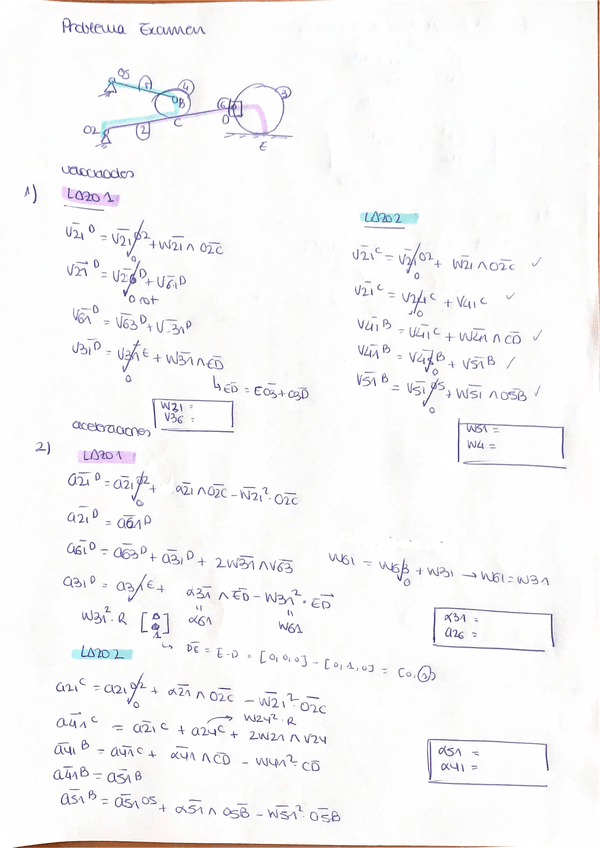 Problema Examen
O5 5 4 B 3
6 D
O2 2 C E
velocidades
1) LAZO 1
V21^D = V21^O2 + W21 ∧ O2C
0
V21^D = V26^D + V61^D
0 rot
V61^D = V63^D + V31^D
V31^D = V31^E + W31 ∧ ED
0
↳ ED = EO3 + O3D
W31 =
V36 =
LAZO 2
V21^C = V21^O2 + W21 ∧ O2C ✓
0
V21^C = V24^C + V41^C ✓
0
V41^B = V41^C + W41 ∧ CD ✓
V41^B = V45^B + V51^B /
0
V51^B = V51^O5 + W51 ∧ O5B ✓
0
W51 =
W4 =
aceleraciones
2) LAZO 1
a21^D = a21^O2 + α21 ∧ O2C - W21² · O2C
0
a21^D = a61^D
a61^D = a63^D + a31^D + 2W31 ∧ V63
W61 = W63 + W31 → W61 = W31
0
a31^D = a31^E + α31 ∧ ED - W31² · ED
W31² · R [0 0 1] " α61 " W61
↳ DE = E - D = [0,0,0] - [0,1,0] =
α31 =
a26 =
LAZO 2
a21^C = a21^O2 + α21 ∧ O2C - W21² · O2C
0
W24² · R
a41^C = a21^C + a24^C + 2W21 ∧ V24
a41^B = a41^C + α41 ∧ CD - W41² · CD
a41^B = a51^B
a51^B = a51^O5 + α51 ∧ O5B - W51² · O5B
α51 =
α41 =